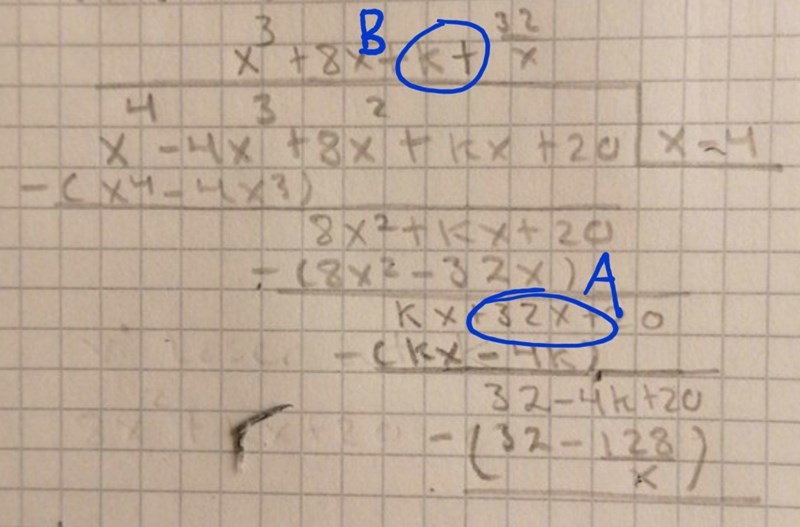 B
x³ + 8x - k + 32/x
x⁴ - 4x³ + 8x² + kx + 20 | x - 4
-(x⁴ - 4x³)
8x² + kx + 20
- (8x² - 32x)
A
kx + 32x + 20
- (kx - 4k)
32 - 4k + 20
- (32 - 128/x)